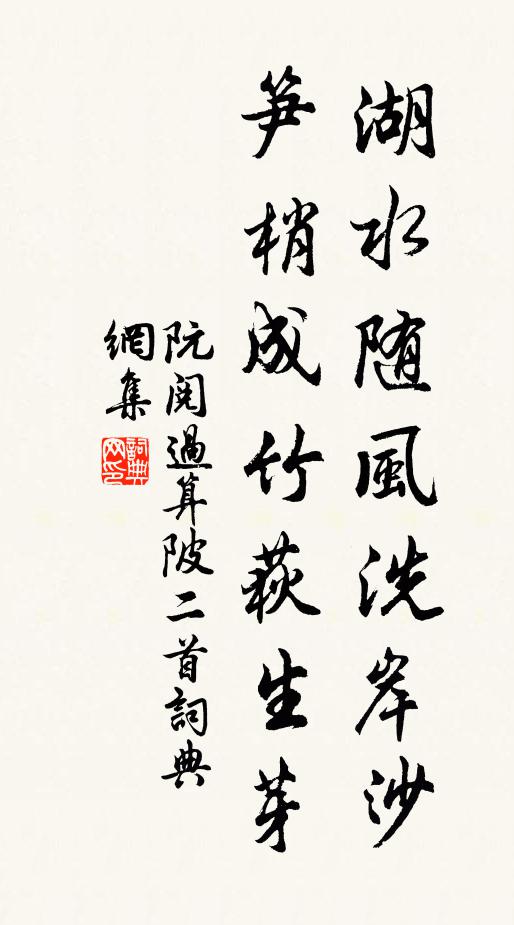 湖水随風洗岸沙
笋梢成竹荻生芽
阮閱過算陂二首詞典
網集
詞典
网印